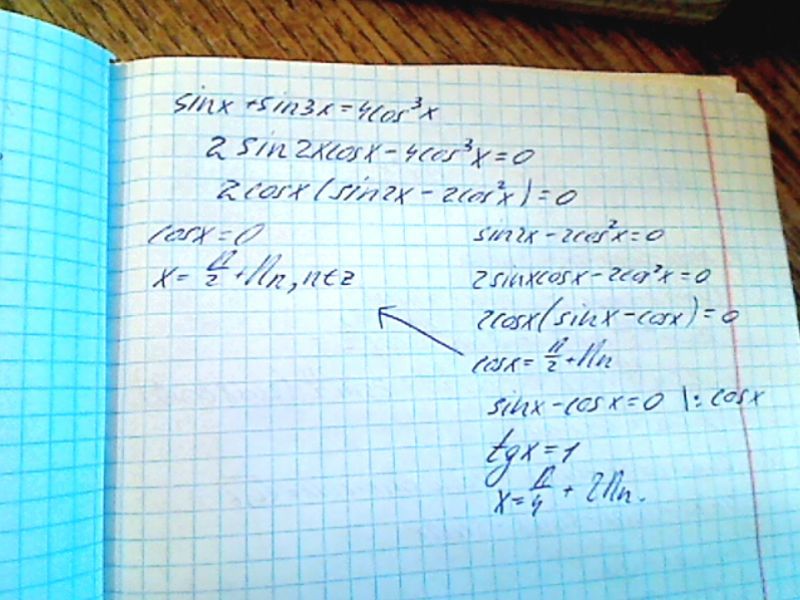 sinx + sin3x = 4cos³x
2 sin2xcosx - 4cos³x = 0
2cosx(sin2x - 2cos²x) = 0
cosx = 0
x = π/2 + πn, n∈z
sin2x - 2cos²x = 0
2sinxcosx - 2cos²x = 0
2cosx(sinx - cosx) = 0
cosx = π/2 + πn
sinx - cosx = 0 |: cosx
tgx = 1
x = π/4 + 2πn.